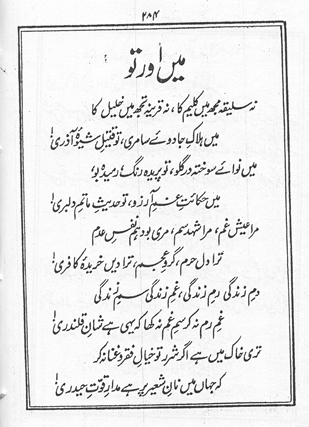 ۲۸۴
میں اور تو
نہ سلیقہ مجھ میں کلیم کا، نہ قرینہ تجھ میں خلیل کا
میں ہلاکِ جادوئے سامری، تو قتیلِ شیوۂ آذری!
میں نوائے سوختہ در گلو، تو پریدہ رنگ، رمیدہ بو
میں حکایتِ غمِ آرزو، تو حدیثِ ماتمِ دلبری!
مرا عیش غم، مرا شہد سم، مری بود ہم نفسِ عدم
ترا دل حرم، گروِ عجم، ترا دیں خریدۂ کافری!
دمِ زندگی رمِ زندگی، غمِ زندگی سمِ زندگی
غمِ رم نہ کر سمِ غم نہ کھا کہ یہی ہے شانِ قلندری!
تری خاک میں ہے اگر شرر تو خیالِ فقر و غنا نہ کر
کہ جہاں میں نانِ شعیر پر ہے مدارِ قوتِ حیدری!